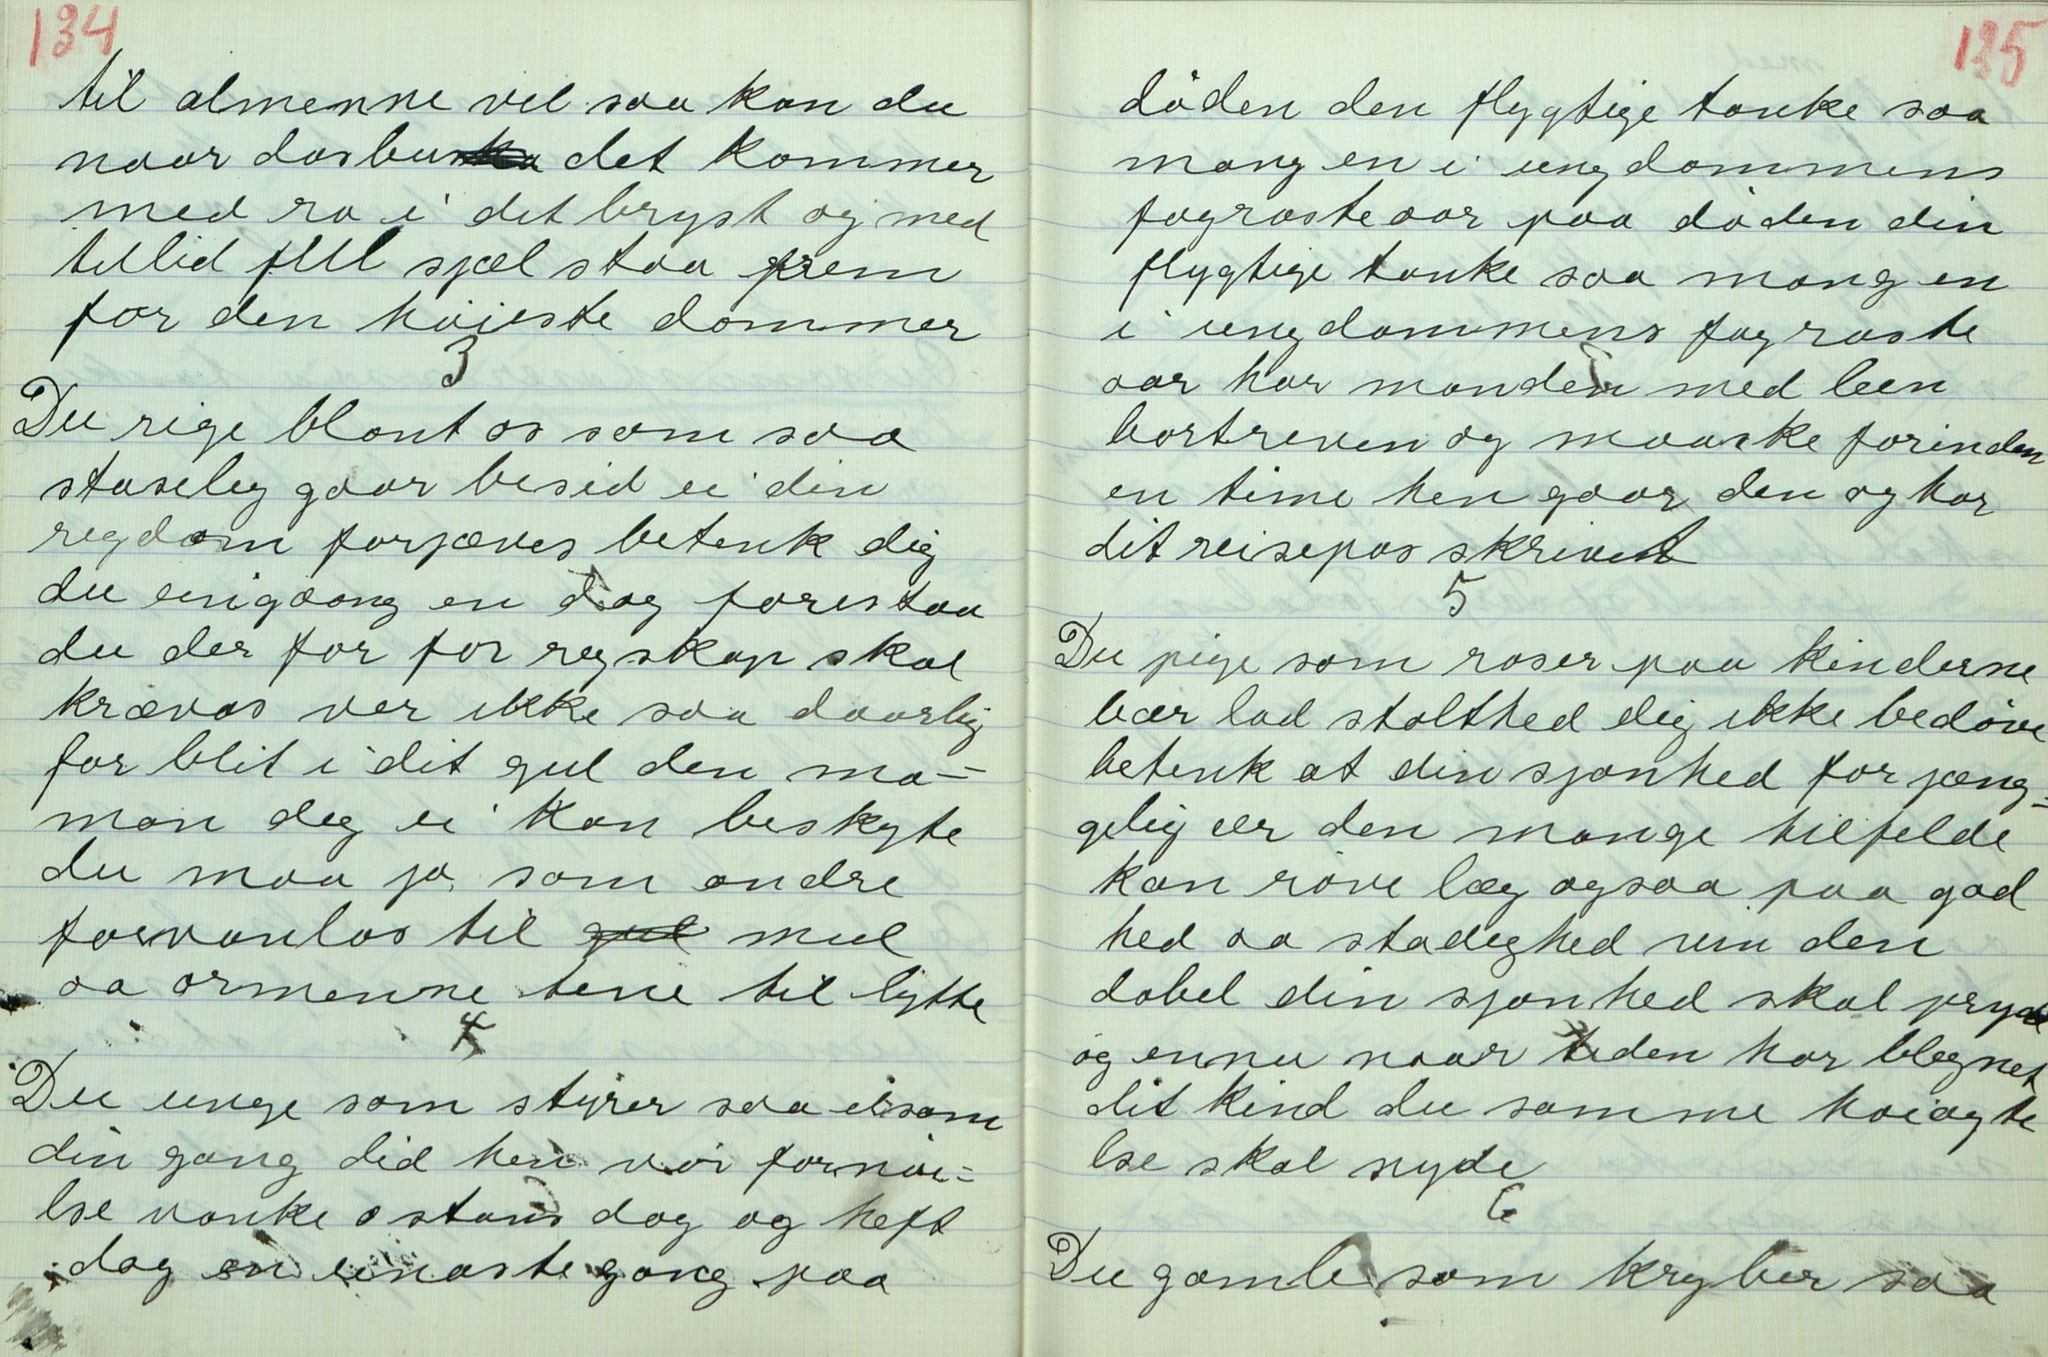 134
til almenne vel saa kan du
naar dasbuska det kommer
med ro i det bryst og med
tillid full sjæl staa frem
for den høieste dommer
3
Du rige blant os som saa
staselig gaar besid ei din
regdom forjæves betenk dig
du einigaang en dag forestaa
du der for for regskap skal
krævas ver ikke saa daarlig
for blit i dit gul den ma-
mon deg ei kan beskyte
du maa jo som andre
forvanlas til gul mul
aa ormenne tene til lytte
4
Du unge som styrer saa eisom
din gang did hen vor fornøi=
lse vanke o stans dag og heft
dag en einaste gang paa
135
døden den flygtige tanke saa
mang en i ungdommens
fagraste aar paa døden din
flygtige tanke saa mang en
i ungdommens fagraste
aar har manden med leen
bortreven og maaske forinden
en time hen gaar den og har
dit reisepas skrivet
5
Du pige som roser paa kinderne
bær lad stolthed dig ikke bedøve
betenk at din sjønhed forjæng=
gelig ær den mange tilfelde
kan røve læg ogsaa paa god
hed aa stadeghed vin den
dobel din sjønhed skal pryde
og ennu naar tiden har blegnet
dit kind du samme høiagte
lse skal nyde
6
Du gamle som kryber saa